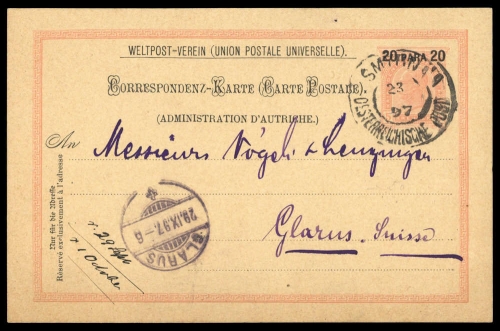 WELTPOST-VEREIN (UNION POSTALE UNIVERSELLE).
20 PARA 20
CORRESPONDENZ-KARTE (CARTE POSTALE).
(ADMINISTRATION D'AUTRICHE.)
23
97
OESTERREICHISCHE POST
An Messieurs Vögeli &
Glarus. Suisse
GLARUS
29.IX.97.-6
Nur für die Adresse
Réservé exclusivement à l'adresse
r. 29
r. 1 October